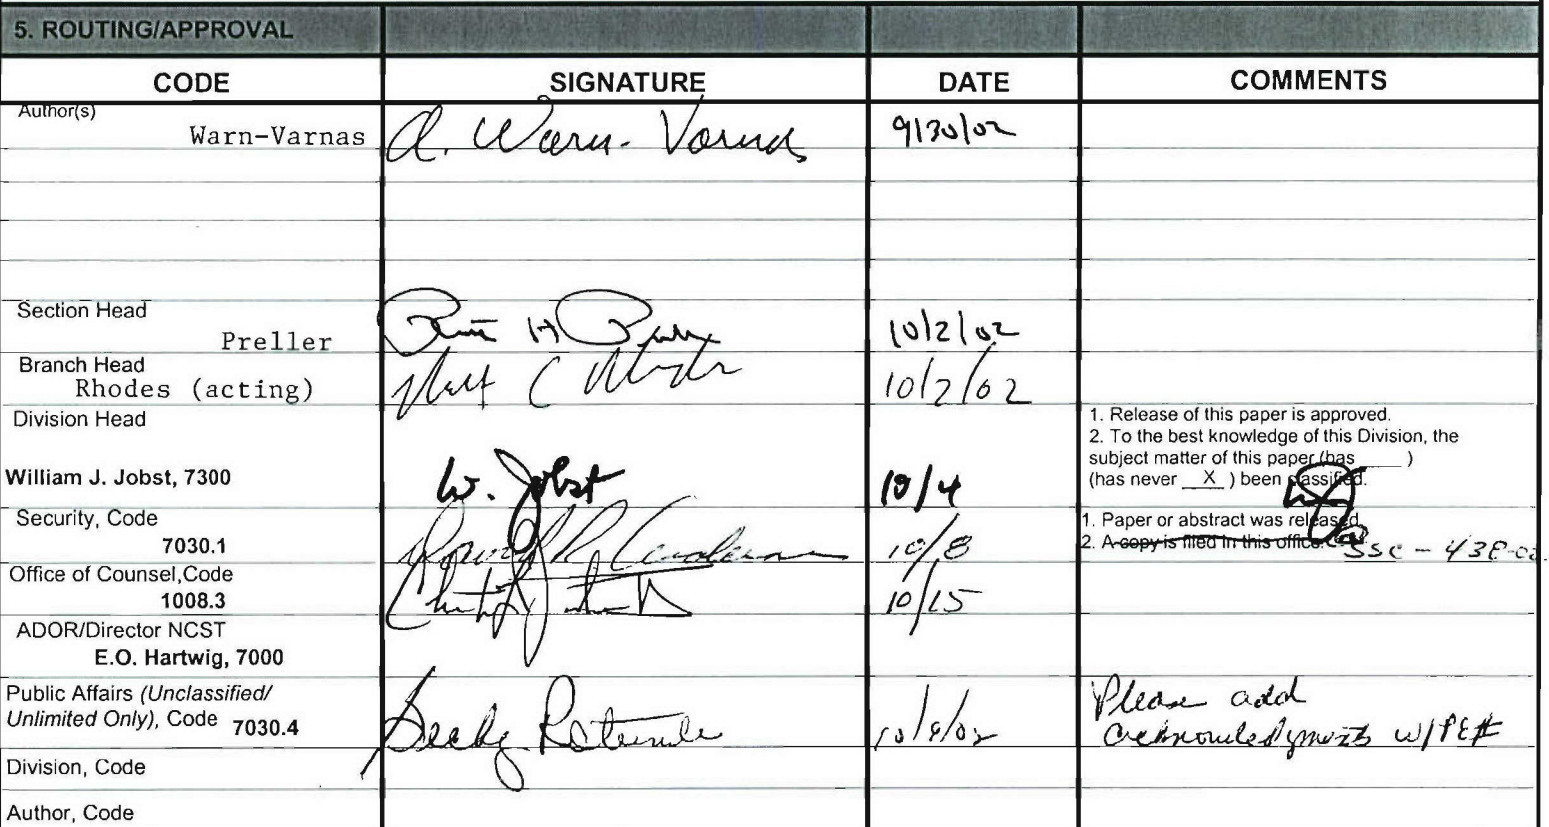 5. ROUTING/APPROVAL
CODE SIGNATURE DATE COMMENTS
Author(s)
Warn-Varnas A. Warn-Varnas 9/30/02
Section Head
Preller 10/2/02
Branch Head
Rhodes (acting) 10/2/02
Division Head
1. Release of this paper is approved.
2. To the best knowledge of this Division, the
subject matter of this paper (has ____ )
(has never X ) been classified.
William J. Jobst, 7300 W. Jobst 10/4
Security, Code
7030.1 10/8
1. Paper or abstract was released.
2. A copy is filed in this office. SSC-
Office of Counsel,Code
1008.3 10/15
ADOR/Director NCST
E.O. Hartwig, 7000
Public Affairs (Unclassified/
Unlimited Only), Code 7030.4 10/8/02
Please add
acknowledgments w/PE#
Division, Code
Author, Code